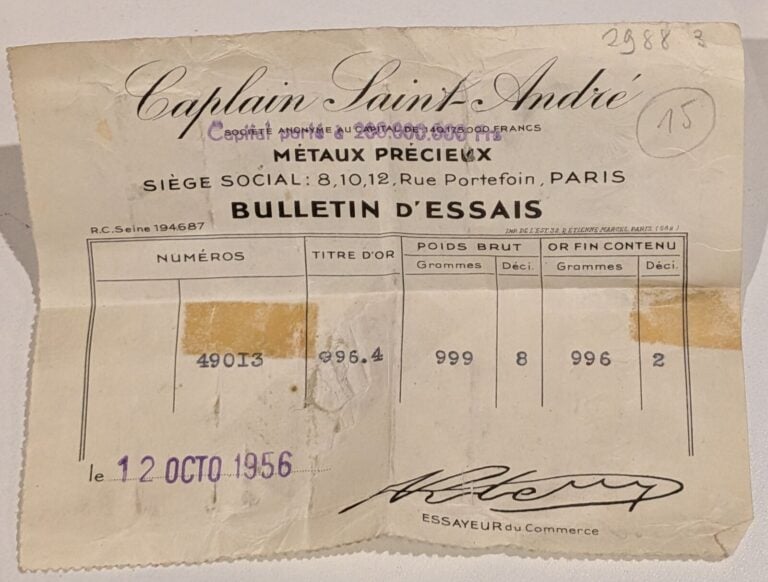 2988 3
Caplain Saint-André
15
SOCIÉTÉ ANONYME AU CAPITAL DE 140.175.000 FRANCS
Capital porté à 200.000.000 Frs
MÉTAUX PRÉCIEUX
SIÈGE SOCIAL: 8,10,12, Rue Portefoin, PARIS
BULLETIN D'ESSAIS
R.C. Seine 194.687
IMP. DE L'EST 32, R. ETIENNE MARCEL, PARIS
NUMÉROS TITRE D'OR POIDS BRUT OR FIN CONTENU
Grammes Déci. Grammes Déci.
49013 996.4 999 8 996 2
le 12 OCTO 1956
ESSAYEUR du Commerce